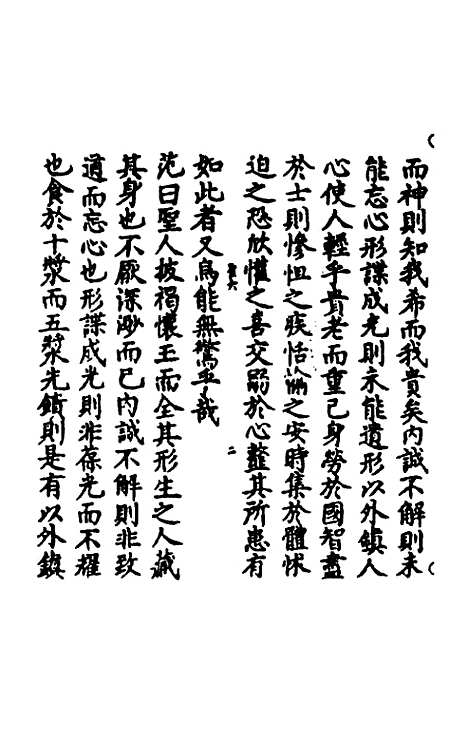 而神則知我希而我貴矣内誠不解則未
能忘心形諜成光則未能遺形以外鎮人
心使人輕乎貴老而重己身勞於國智盡
於士則慘怛之疾恬愉之安時集於體怵
迫之恐欣懽之喜交戰於心虀其所患有
如此者又烏能無驚乎哉
范曰聖人披褐懷玉而全其形生之人藏
其身也不厭深眇而已内誠不解則非致
道而忘心也形諜成光則非葆光而不耀
也食於十漿而五漿先饋則是有以外鎮
二